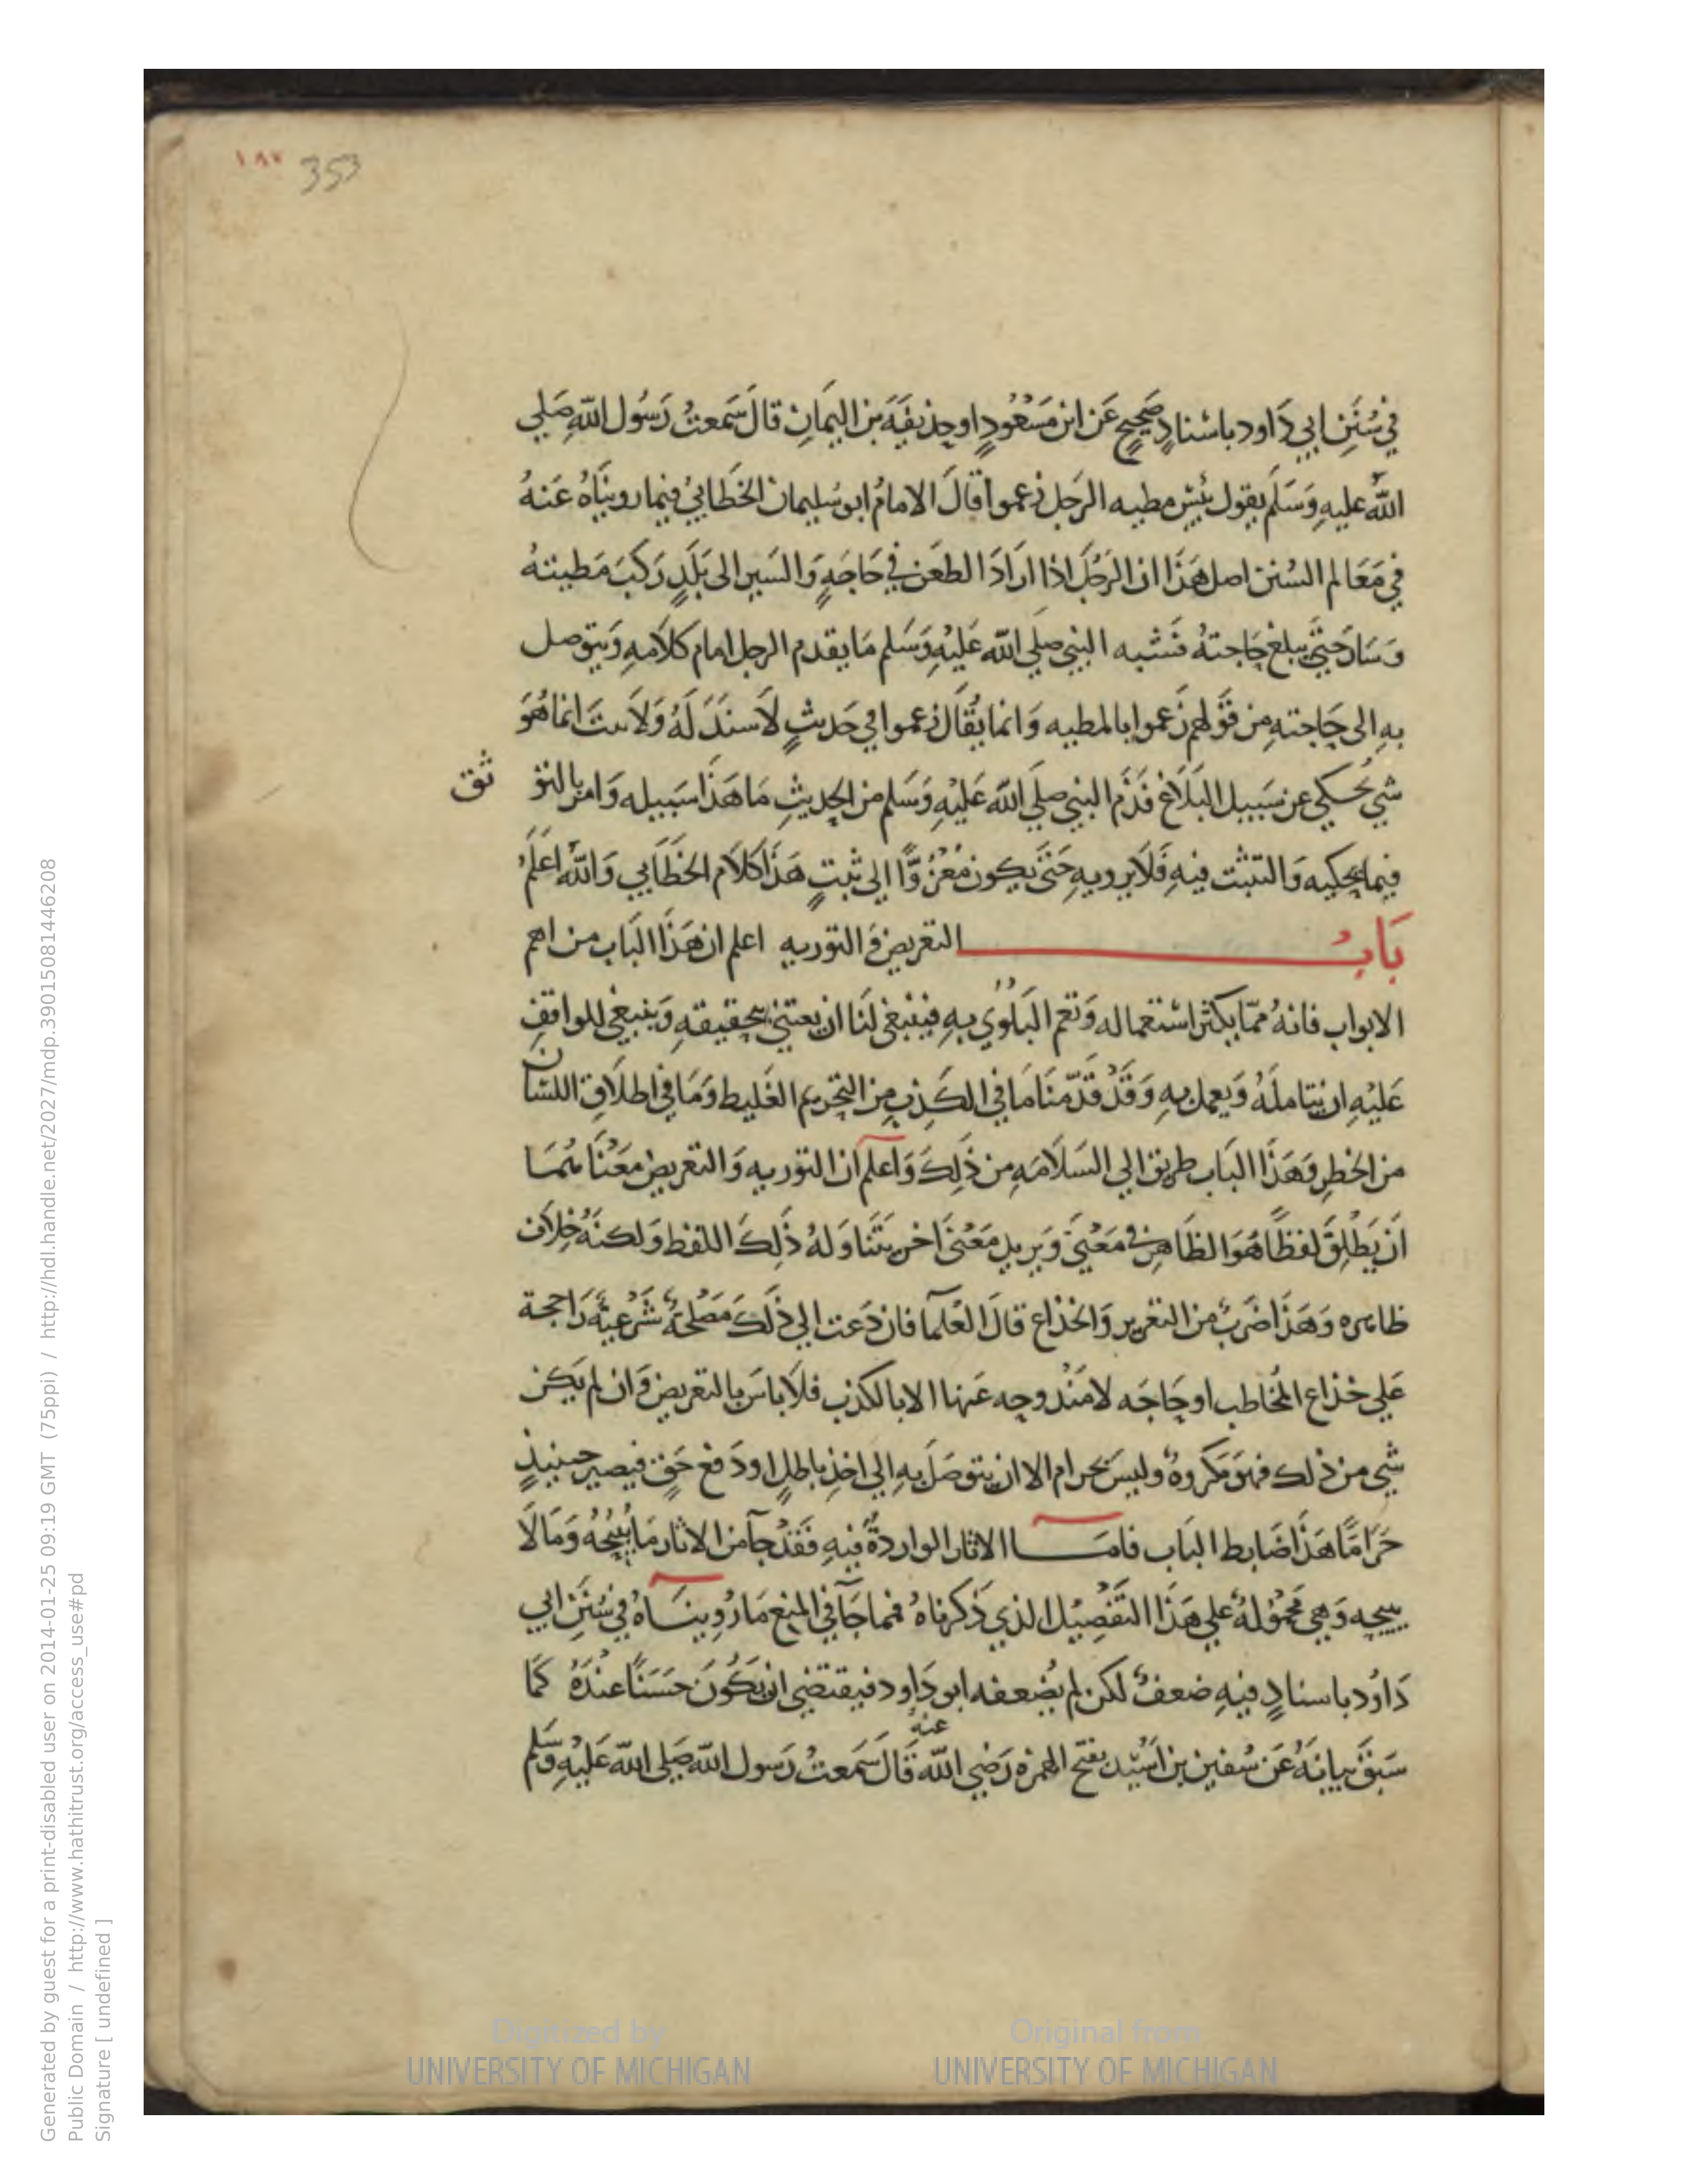 ١٨٧ 353
في سُنَنِ ابي دَاود باسْنادٍ صَحِيحٍ عَن ابن مَسْعُودٍ او حذيفَة بن اليَمانِ قالَ سَمعتُ رَسُول اللّهِ صَلي
اللّه عليهِ وَسَلَّم يقول بئسَ مطيه الرَجل زعموا قالَ الامامُ ابو سُليمان الخَطَّابيُ فيما رويناهُ عَنهُ
في مَعَالم السُنن اصل هَذَا ان الرَجُلَ اذا ارَادَ الطعَن في حَاجَةٍ وَالسَير الى بَلَدٍ رَكبَ مَطيتهُ
وَسَارَ حَتَّى يبلغ حَاجتهُ فشبه النبي صلي اللّه عَليْهِ وَسَلم مَا يقدم الرجل امام كلامِهِ وَيتوصل
بهِ الى حَاجتهِ من قَولهم زَعموا بالمطيه وَانما يُقَال زعموا في حَديثٍ لاَ سنَدَ لَهُ وَلاَ ست انما هُوَ
شي يُحكي عن سَبيل البَلاَغ فَذَم النبي صلي اللّه عَليْهِ وَسَلم من الحديثِ مَا هَذَا سَبيله وَامر بالتو ثق
فيما يحكيه وَالتثبت فيهِ فَلاَ يرويهِ حَتَّى يكون مَعْزُوًّا الى ثبتٍ هَذَا كلاَم الخَطَابي وَاللّه اعلَمُ
بَابُ التعريض وَالتوريه اعلم ان هَذَا البَاب من اهم
الابواب فانهُ ممّا يكثر استعماله وَتعم البَلْوي بهِ فينبغي لنَا ان نعتني بتحقيقهِ وَينبغي للواقفِ
عَليْهِ ان يتاملَهُ وَيعمل بهِ وَقَدْ قَدّمنَا مَا في الكَذبِ من التحريم الغَليط وَمَا في اطلاَقِ اللسَان
من الخطرِ وَهَذَا البَاب طريق الي السَلاَمَهِ من ذَلِكَ وَاعلم ان التوريه وَالتعريض مَعْنَاهُمَا
اَن يَطْلِقَ لفظًا هُوَ الظَاهِر في مَعْنيً وَيريد مَعْنيً اخر يَتَنَاولهُ ذَلِكَ اللفظ وَلكنهُ خِلاَف
ظاهره وَهَذَا ضَربٌ من التغرير وَالخداع قالَ العُلمآ فان دَعت الي ذَلكَ مَصْلحَةٌ شَرْعيةٌ رَاجحة
عَلي خداع المُخاطب او حَاجَه لا مَنْدوحه عَنها الا بالكذب فلاَ باسَ بالتعريض وَان لم يَكن
شي من ذلك فهو مَكروهٌ وليسَ بحرام الا ان يتوصَلَ بهِ الي اخذِ باطلٍ او دَفع حَقٍ فيصير حينيذٍ
حَرَامًا هَذَا ضَابط البَاب فامَا الاثار الواردةٌ فيهِ فَقَدْ جآ من الاثار مَا يُبيحُهُ وَمَا لاَ
يبيحه وَهي محمُولهٌ علي هَذَا التَفْصِيْل الذي ذكرناهُ فمما جَآ في المنع مَا رُوِينَاهُ في سُنَنِ ابي
دَاوُد باسنادٍ فيهِ ضعفٌ لكن لم يُضعفه ابو دَاود فيقتضي ان يكُونَ حَسَنًا عنْدَهُ كمَا
سَبَقَ بيانهُ عَن سُفين بن اَسِيْد بفتح الهمزه رَضي اللّه عنه قَالَ سَمعتُ رَسول اللّه صَلي اللّه عَليْهِ وَسَلم
Digitized by
UNIVERSITY OF MICHIGAN
Original from
UNIVERSITY OF MICHIGAN
Generated by guest for a print-disabled user on 2014-01-25 09:19 GMT (75ppi) / http://hdl.handle.net/2027/mdp.39015081446208
Public Domain / http://www.hathitrust.org/access_use#pd
Signature [ undefined ]